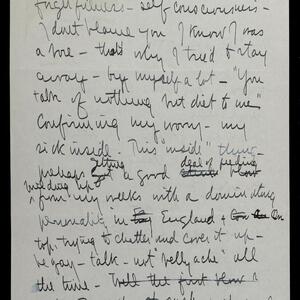 forgetfulness - self consciousness -
I don't blame you I know I was
a bore - that's why I tried to stay
away - by myself a lot - "You
talk of nothing but diet to me"
confirming my worry - my
sick inside. This "inside" thing -
perhaps getting a good deal of
from my weeks with a dominating
personality in England &
top - trying to chatter and cover it up -
be gay - talk - not bellyache all
the time - Well the first